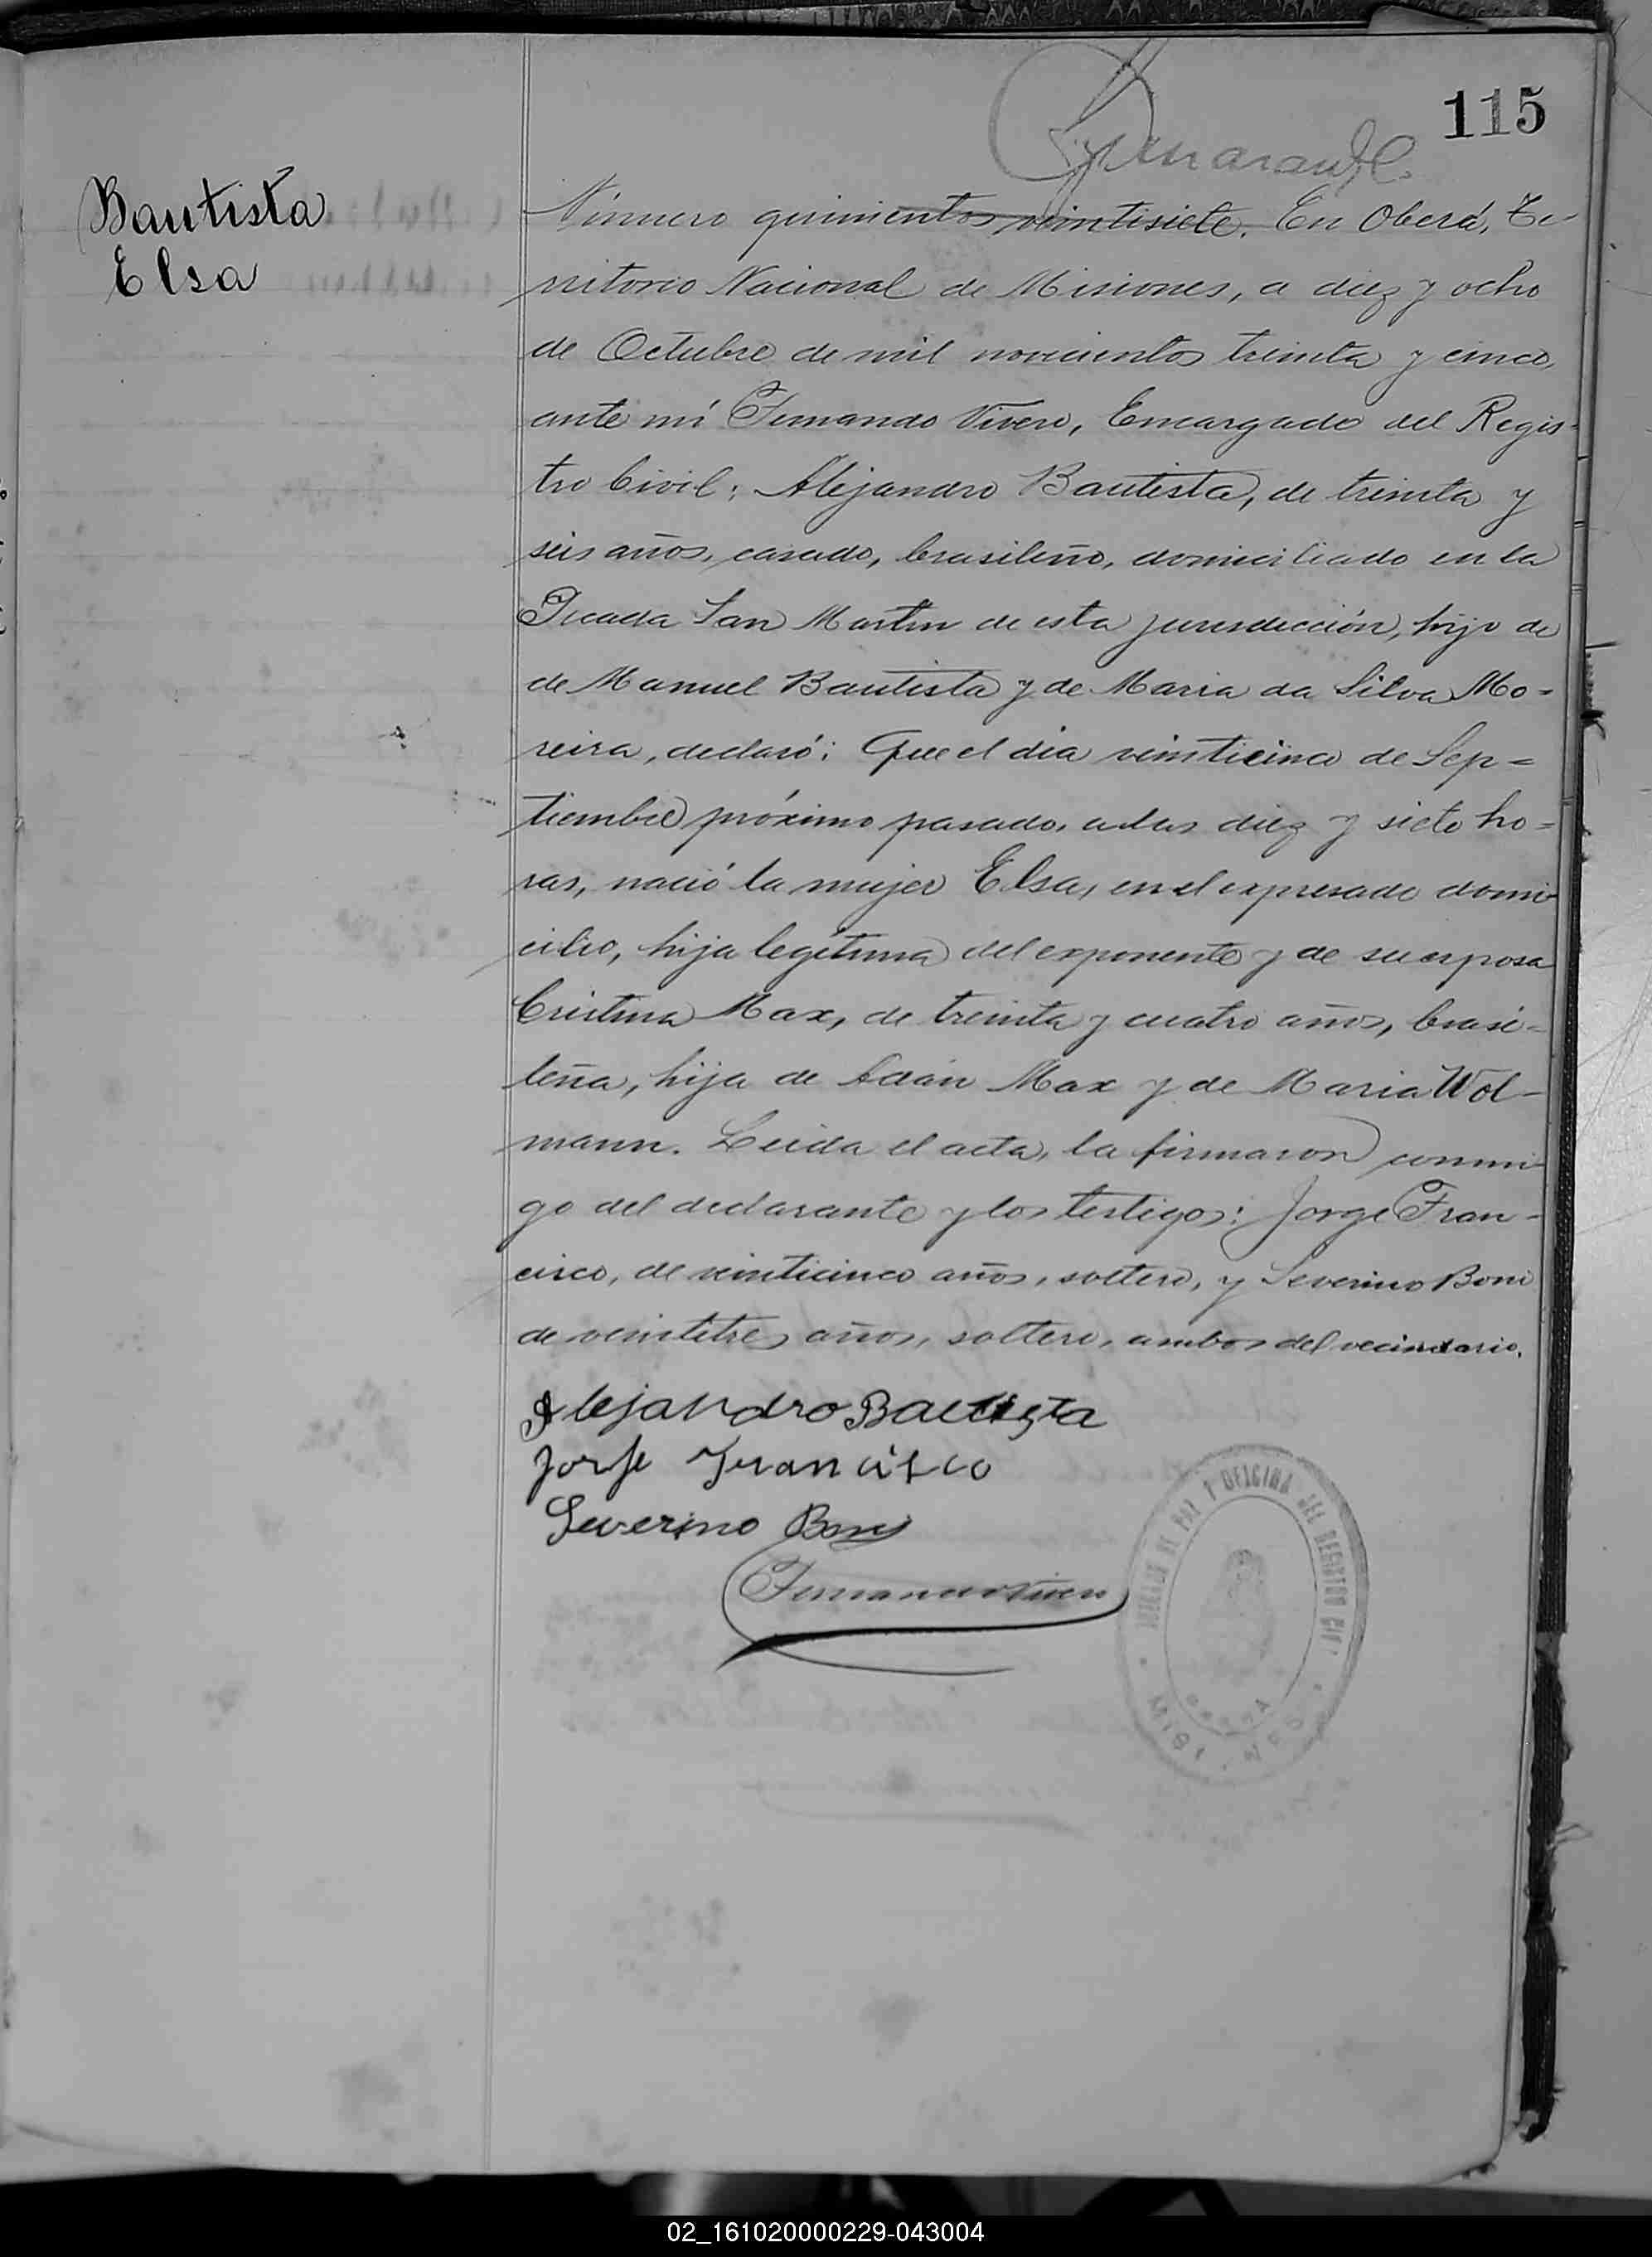 115
Bautista
Elsa
Número quinientos veintisiete. En Oberá, Te-
rritorio Nacional de Misiones, a diez y ocho
de Octubre de mil novecientos treinta y cinco,
ante mí Fernando Vivero, Encargado del Regis-
tro Civil: Alejandro Bautista, de treinta y
seis años, casado, brasileño, domiciliado en la
Picada San Martin de esta jurisdicción, hijo de
de Manuel Bautista y de Maria da Silva Mo=
reira, declaró: Que el dia veinticinco de Sep=
tiembre próximo pasado, a las diez y siete ho=
ras, nació la mujer Elsa, en el expresado domi-
cilio, hija legítima del exponente y de su esposa
Cristina Max, de treinta y cuatro años, brasi=
leña, hija de Adán Max y de Maria Wol-
mann. Leida el acta, la firmaron conmi-
go del declarante y los testigos: Jorge Fran-
cisco, de veinticinco años, soltero, y Severino Boni
de veintitres años, soltero, ambos del vecindario.
Alejandro Bautista
Jorge Francisco
Severino Boni
Fernando Vivero
DE PAZ Y OFICINA DEL REGISTRO CIVIL
02_161020000229-043004